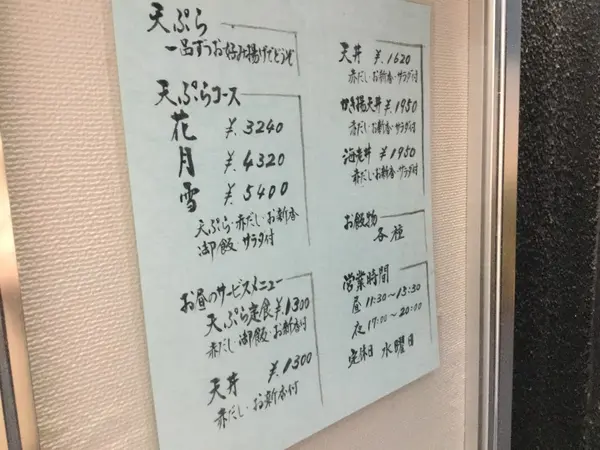 天ぷら
一品ずつお好み揚げでどうぞ
天ぷらコース
花 ¥3240
月 ¥4320
雪 ¥5400
天ぷら・赤だし・お新香
御飯・サラダ付
お昼のサービスメニュー
天ぷら定食¥1300
赤だし・御飯・お新香付
天丼 ¥1300
赤だし・お新香付
天丼 ¥1620
赤だし・お新香・サラダ付
かき揚天丼 ¥1950
赤だし・お新香・サラダ付
海老丼 ¥1950
赤だし・お新香・サラダ付
お飲物
各種
営業時間
昼 11:30〜13:30
夜 17:00〜20:00
定休日 水曜日